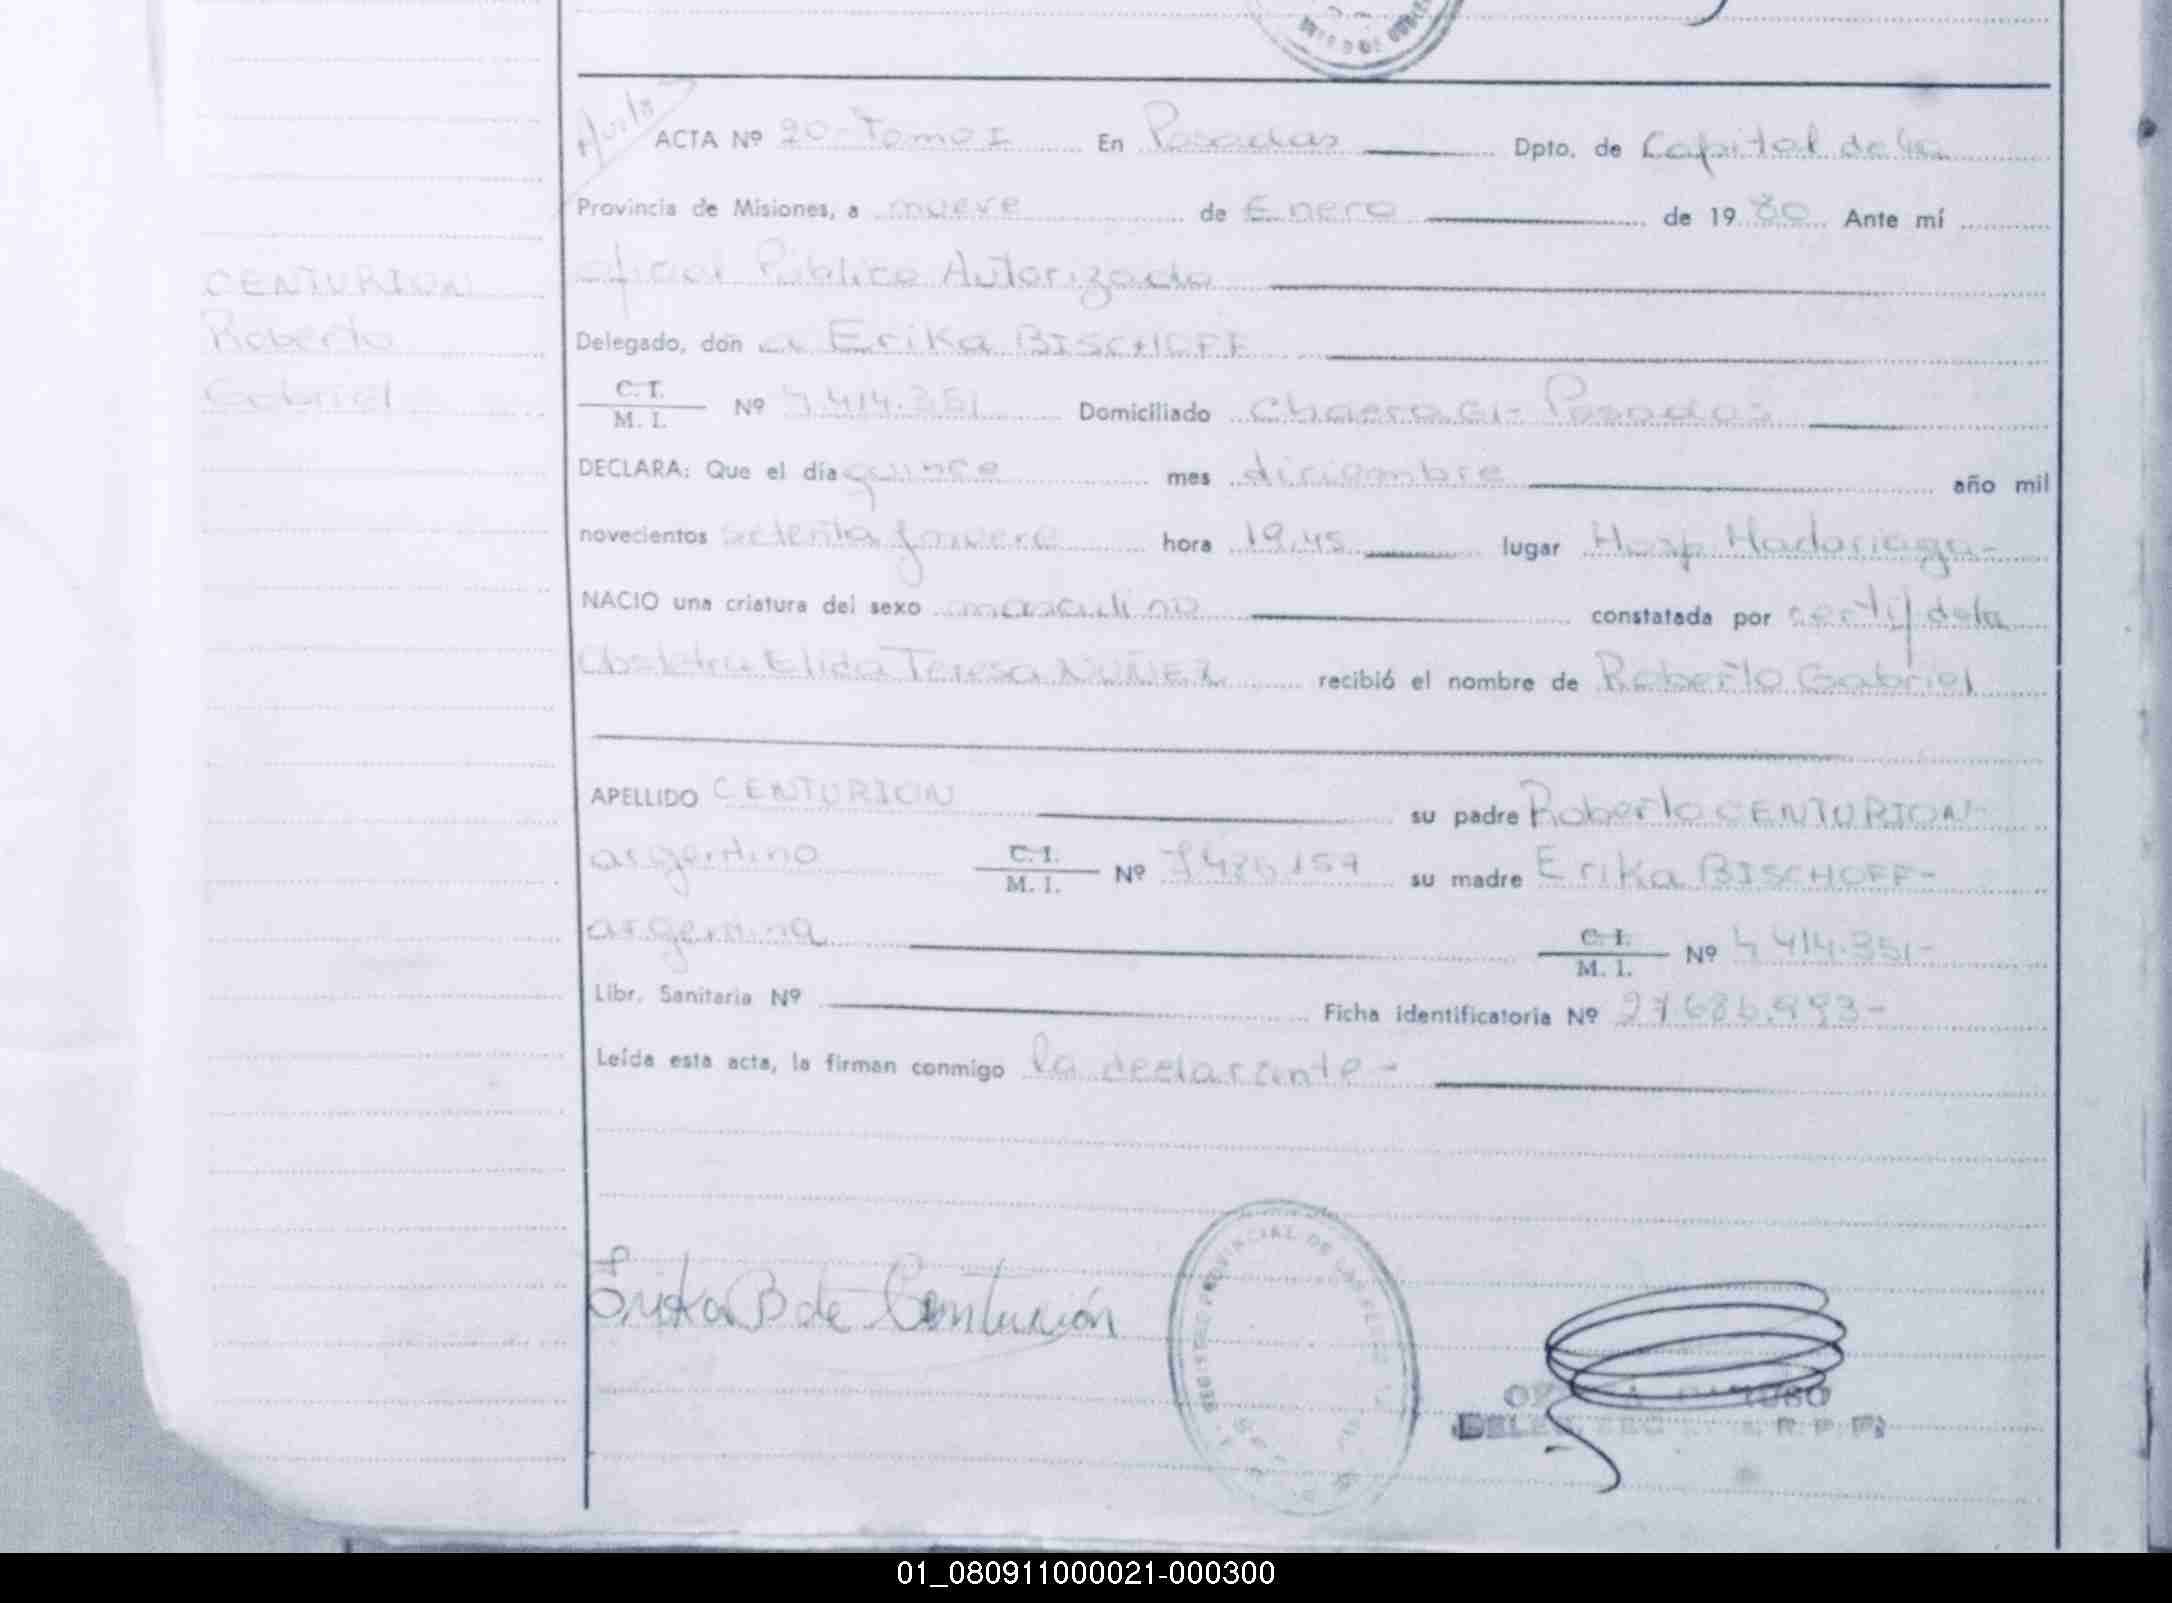 ACTA Nº 20 - Tomo I En Posadas Dpto. de Capital de la
Provincia de Misiones, a nueve de Enero de 1980 Ante mí
oficial Público Autorizado
Delegado, don a Erika BISCHOFF
CENTURION
Roberto
Gabriel
C. I.
M. I. Nº 4.414.351 Domiciliado Chacra 61 - Posadas
DECLARA: Que el día quince mes diciembre año mil
novecientos setenta y nueve hora 19,45 lugar Hosp Madariaga -
NACIO una criatura del sexo masculino constatada por certif de la
Obstetra Elida Teresa NUÑEZ recibió el nombre de Roberto Gabriel
APELLIDO CENTURION su padre Roberto CENTURION -
argentino C. I.
M. I. Nº su madre Erika BISCHOFF -
argentina C. I.
M. I. Nº 4 414.351 -
Libr. Sanitaria Nº Ficha identificatoria Nº
Leída esta acta, la firman conmigo la declarante -
Erika B de Centurión
REGISTRO PROVINCIAL DE LAS
01_080911000021-000300